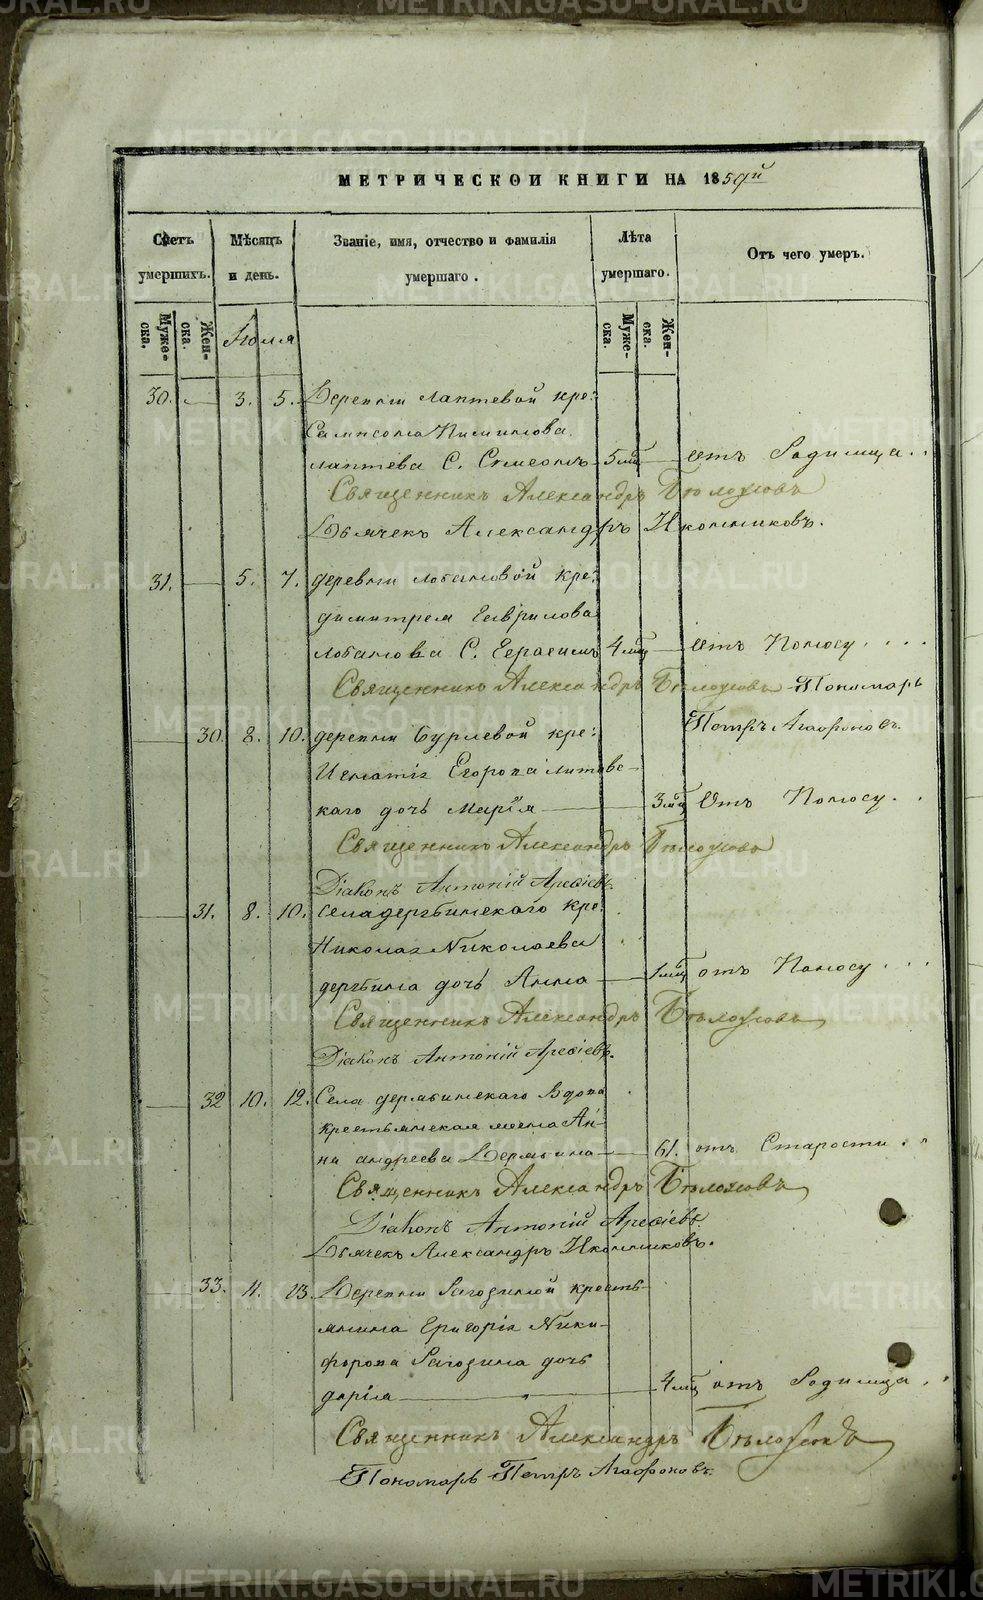 МЕТРИЧЕСКОЙ КНИГИ НА 1859й
Счетъ умершихъ.
Мѣсяцъ и день.
Званіе, имя, отчество и фамилія умершаго.
Лѣта умершаго.
Отъ чего умеръ.
Муже-ска.
Жен-ска.
Іюля
Муже-ска.
Жен-ска.
30. 3. 5. Деревни Лаптевой кре:
Самисона Пиминова
Лаптева С. Симеонъ 5 мц Отъ Родимца..
Священникъ Александръ Бѣлоусовъ
Дьячекъ Александръ Иконниковъ.
31. 5. 7. деревни Лобановой кре:
димитрея Гаврилова
Лобанова С. Герасимъ 4 мц Отъ Поносу....
Священникъ Александръ Бѣлоусовъ Пономарь
Петръ Агафоновъ.
30. 8. 10. деревни Бурлевой кре:
Игнатія Егорова Литовс-
каго дочь Марія 3 мц Отъ Поносу..
Священникъ Александръ Бѣлоусовъ
Діаконъ Антоній Арефіевъ.
31. 8. 10. села дерябинскаго кре:
Николая Николаева
дерябина дочь Анна 1 мц отъ Поносу...
Священникъ Александръ Бѣлоусовъ
Діаконъ Антоній Арефіевъ.
32 10. 12. Села дерябинскаго Вдова
крестьянская жена Ан-
на андреева Дерябина 61. отъ Старости..
Священникъ Александръ Бѣлоусовъ
Діаконъ Антоній Арефіевъ
Дьячекъ Александръ Иконниковъ.
33. 11. 13. Деревни Рагозиной кресть-
янина Григорія Ники-
форова Рагозина дочь
дарія 4 мц отъ Родимца..
Священникъ Александръ Бѣлоусовъ
Пономарь Петръ Агафоновъ.
METRIKI.GASO-URAL.RU